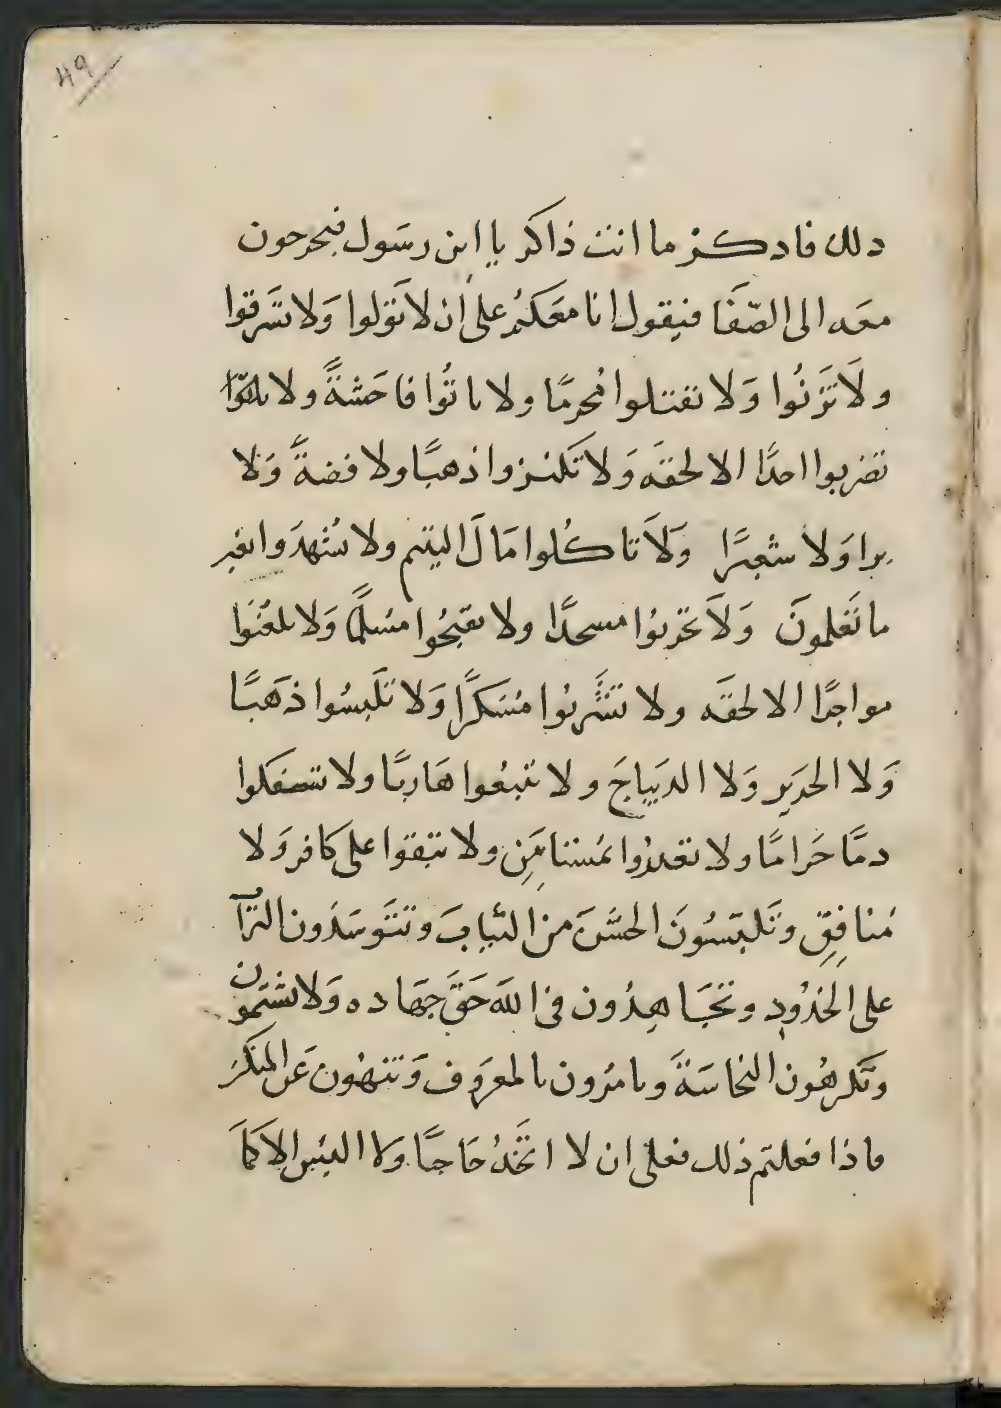 49
دلك فادكر ما انت ذاكر يا ابن رسَول فيخرجون
معَه الى الصّفَا فيَقول انا معَكمُ على ان لا تَوَلوا وَلا تسَرقوا
ولَا تَزنُوا وَلا تقتلوا مُحرمًا ولا ياتُوا فاحَشةً ولا
تضربوا احدًا الا لحقه وَلا تَكنزوا ذهبًا ولا فضةً وَلا
برا وَلا شعيرًا وَلَا تاكُلوا مَالَ اليتيم ولا تشُهدَوا بغير
ما تَعَلمونَ وَلَا تخربُوا مسحدًا ولا يقبحُوا مسُلمًا وَلا يلعَنُوا
مواجرًا الا لحقَه ولا تشَربُوا مسَكرًا وَلا تلَبسُوا ذهَبًا
وَلا الحَرَير وَلا الديباجَ ولا تتبعُوا هَاربًا ولا تسفكوا
دمًا حَرامًا ولا تغدرُوا بمُستامَنِ ولا تبقوا على كافر وَلا
مُنافِقِ وتَلبَسُونَ الخشَنَ من الثيابَ وتتَوسَدُون الترا
على الخدُودِ وتجَاهِدُون في الله حَقَ جِهَاده وَلا تشتموُن
وتَكرهُون النجاسَةَ ويامرُون بالمعرَوف وَتنهُون عَن المنكَر
فاذا فعلتم ذلك فعلىّ ان لا اتخَذُ حَاجبًا وَلا البس الا كمَا